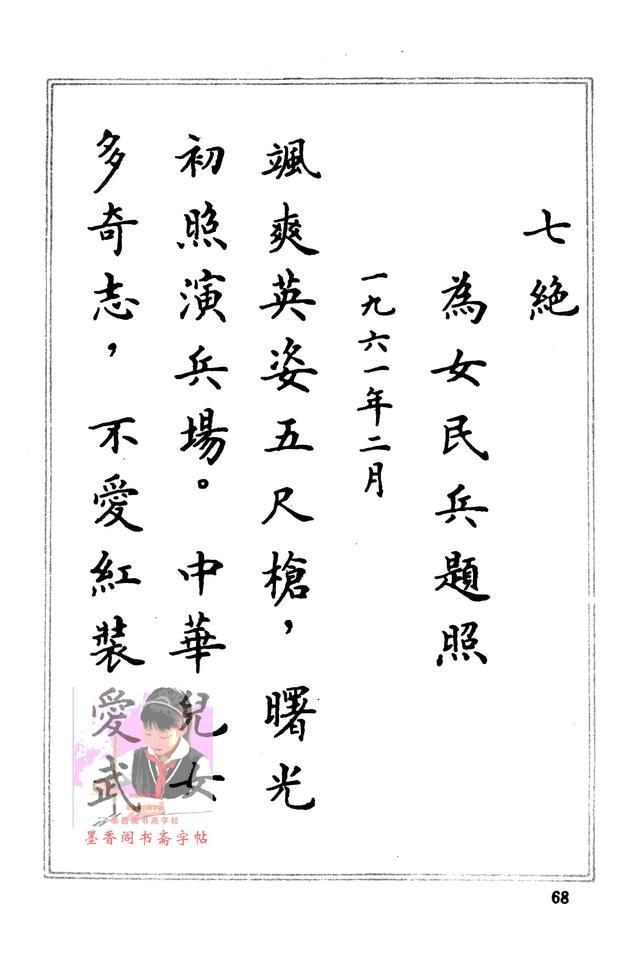 七絕
為女民兵題照
一九六一年二月
颯爽英姿五尺槍，曙光
初照演兵場。中華兒女
多奇志，不愛紅裝愛武
墨香阁书斋字帖
68